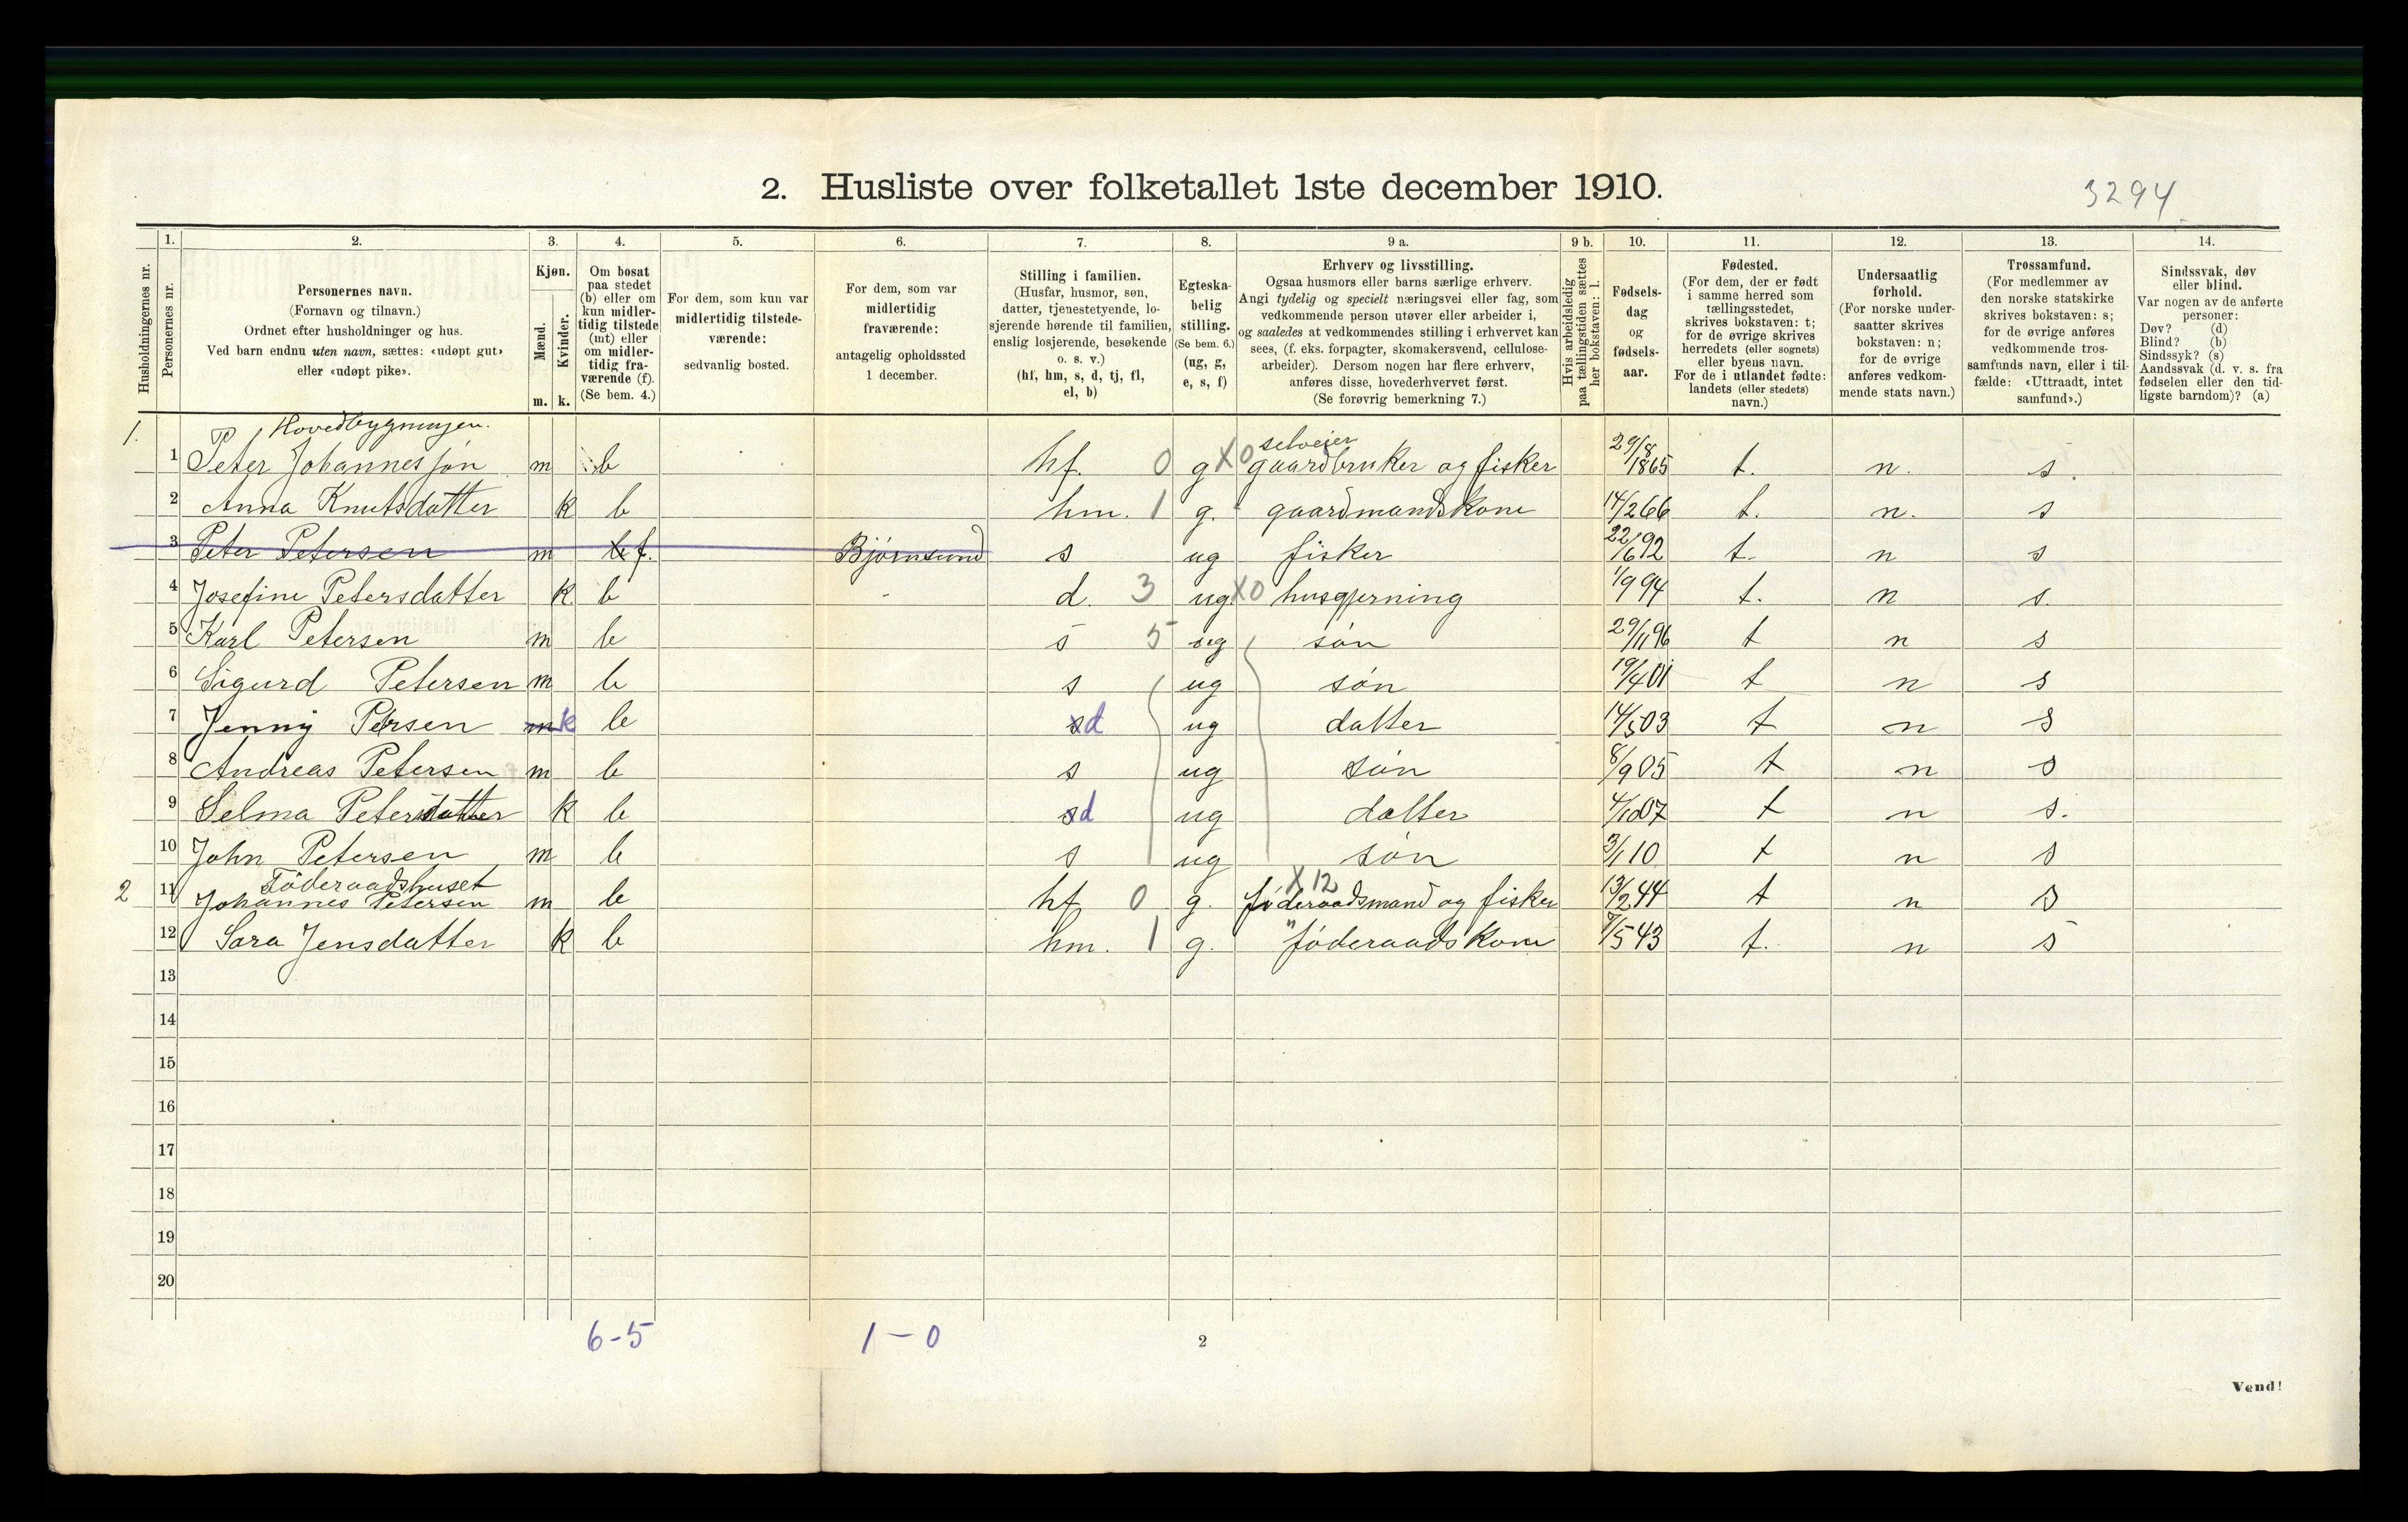 2. Husliste over folketallet 1ste december 1910.
3294
Husholdningernes nr.
1.
Personernes nr.
2.
Personernes navn.
(Fornavn og tilnavn.)
Ordnet efter husholdninger og hus.
Ved barn endnu uten navn, sættes: «udøpt gut»
eller «udøpt pike».
3.
Kjøn.
Mænd.
Kvinder.
m. k.
4.
Om bosat
paa stedet
(b) eller om
kun midler-
tidig tilstede
(mt) eller
om midler-
tidig fra-
værende (f).
(Se bem. 4.)
5.
For dem, som kun var
midlertidig tilstede-
værende:
sedvanlig bosted.
6.
For dem, som var
midlertidig
fraværende:
antagelig opholdssted
1 december.
7.
Stilling i familien.
(Husfar, husmor, søn,
datter, tjenestetyende, lo-
sjerende hørende til familien,
enslig losjerende, besøkende
o. s. v.)
(hf, hm, s, d, tj, fl,
el, b)
8.
Egteska-
belig
stilling.
(Se bem. 6.)
(ug, g,
e, s, f)
9 a.
Erhverv og livsstilling.
Ogsaa husmors eller barns særlige erhverv.
Angi tydelig og specielt næringsvei eller fag, som
vedkommende person utøver eller arbeider i,
og saaledes at vedkommendes stilling i erhvervet kan
sees, (f. eks. forpagter, skomakersvend, cellulose-
arbeider). Dersom nogen har flere erhverv,
anføres disse, hovederhvervet først.
(Se forøvrig bemerkning 7.)
9 b.
Hvis arbeidsledig
paa tællingstiden sættes
her bokstaven: l.
10.
Fødsels-
dag
og
fødsels-
aar.
11.
Fødested.
(For dem, der er født
i samme herred som
tællingsstedet,
skrives bokstaven: t;
for de øvrige skrives
herredets (eller sognets)
eller byens navn.
For de i utlandet fødte:
landets (eller stedets)
navn.)
12.
Undersaatlig
forhold.
(For norske under-
saatter skrives
bokstaven: n;
for de øvrige
anføres vedkom-
mende stats navn.)
13.
Trossamfund.
(For medlemmer av
den norske statskirke
skrives bokstaven: s;
for de øvrige anføres
vedkommende tros-
samfunds navn, eller i til-
fælde: «Uttraadt, intet
samfund».)
14.
Sindssvak, døv
eller blind.
Var nogen av de anførte
personer:
Døv? (d)
Blind? (b)
Sindssyk? (s)
Aandssvak (d. v. s. fra
fødselen eller den tid-
ligste barndom)? (a)
Hovedbygningen.
1. 1 Peter Johannessøn m b hf. 0 g X0 selveier gaardbruker og fisker 29/8 1865 t. n. s
2 Anna Knutsdatter k b hm. 1 g. gaardmandskone 14/2 66 t. n. s
3 Peter Petersen m b f. Bjørnsund s ug fisker 22/6 92 t. n s
4 Josefine Petersdatter k b d. 3 ug X0 husgjerning 1/9 94 t. n s.
5 Karl Petersen m b s 5 ug søn 29/11 96 t n s
6 Sigurd Petersen m b s ug søn 19/4 01 t n s
7 Jenny Petersen m k b s d ug datter 14/5 03 t n s
8 Andreas Petersen m b s ug søn 8/9 05 t n s
9 Selma Petersdatter k b s d ug datter 4/10 07 t n s.
10 John Petersen m b s ug søn 3/1 10 t n s
Föderaadshuset
2 11 Johannes Petersen m b hf 0 g. X 12 føderaadsmand og fisker 13/2 44 t n s
12 Sara Jensdatter k b hm. 1 g. " føderaadskone 7/5 43 t. n s
13
14
15
16
17
18
19
20
6-5 1-0
2
Vend!